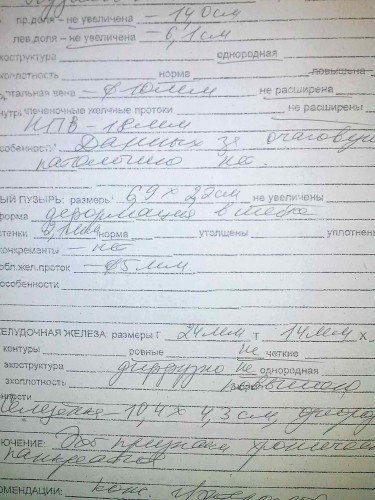 пр.доля – не увеличена – 140см
лев.доля – не увеличена – 6,1см
хоструктура однородная
хоплотность норма повышена
ртальная вена – ø 10мм не расширена
нутрипеченочные желчные протоки не расширены
НПВ – 18мм
собенности: Данных за очаговую
патологию нет.
ЫЙ ПУЗЫРЬ: размеры 69 х 22см не увеличены
форма деформация в шейке
стенки 2,1мм норма утолщены уплотнены
конкременты – нет
общ.жел.проток – ø5мм
особенности
ЕЛУДОЧНАЯ ЖЕЛЕЗА: размеры Г 24мм Т 14мм Х
контуры ровные не четкие
экоструктура диффузно не однородная
эхоплотность повышена
ности
Селезенка – 10,4 х 4,3 см, однород
ЮЧЕНИЕ: Эхо признаки хроническ
панкреатита
ОМЕНДАЦИИ: конс.